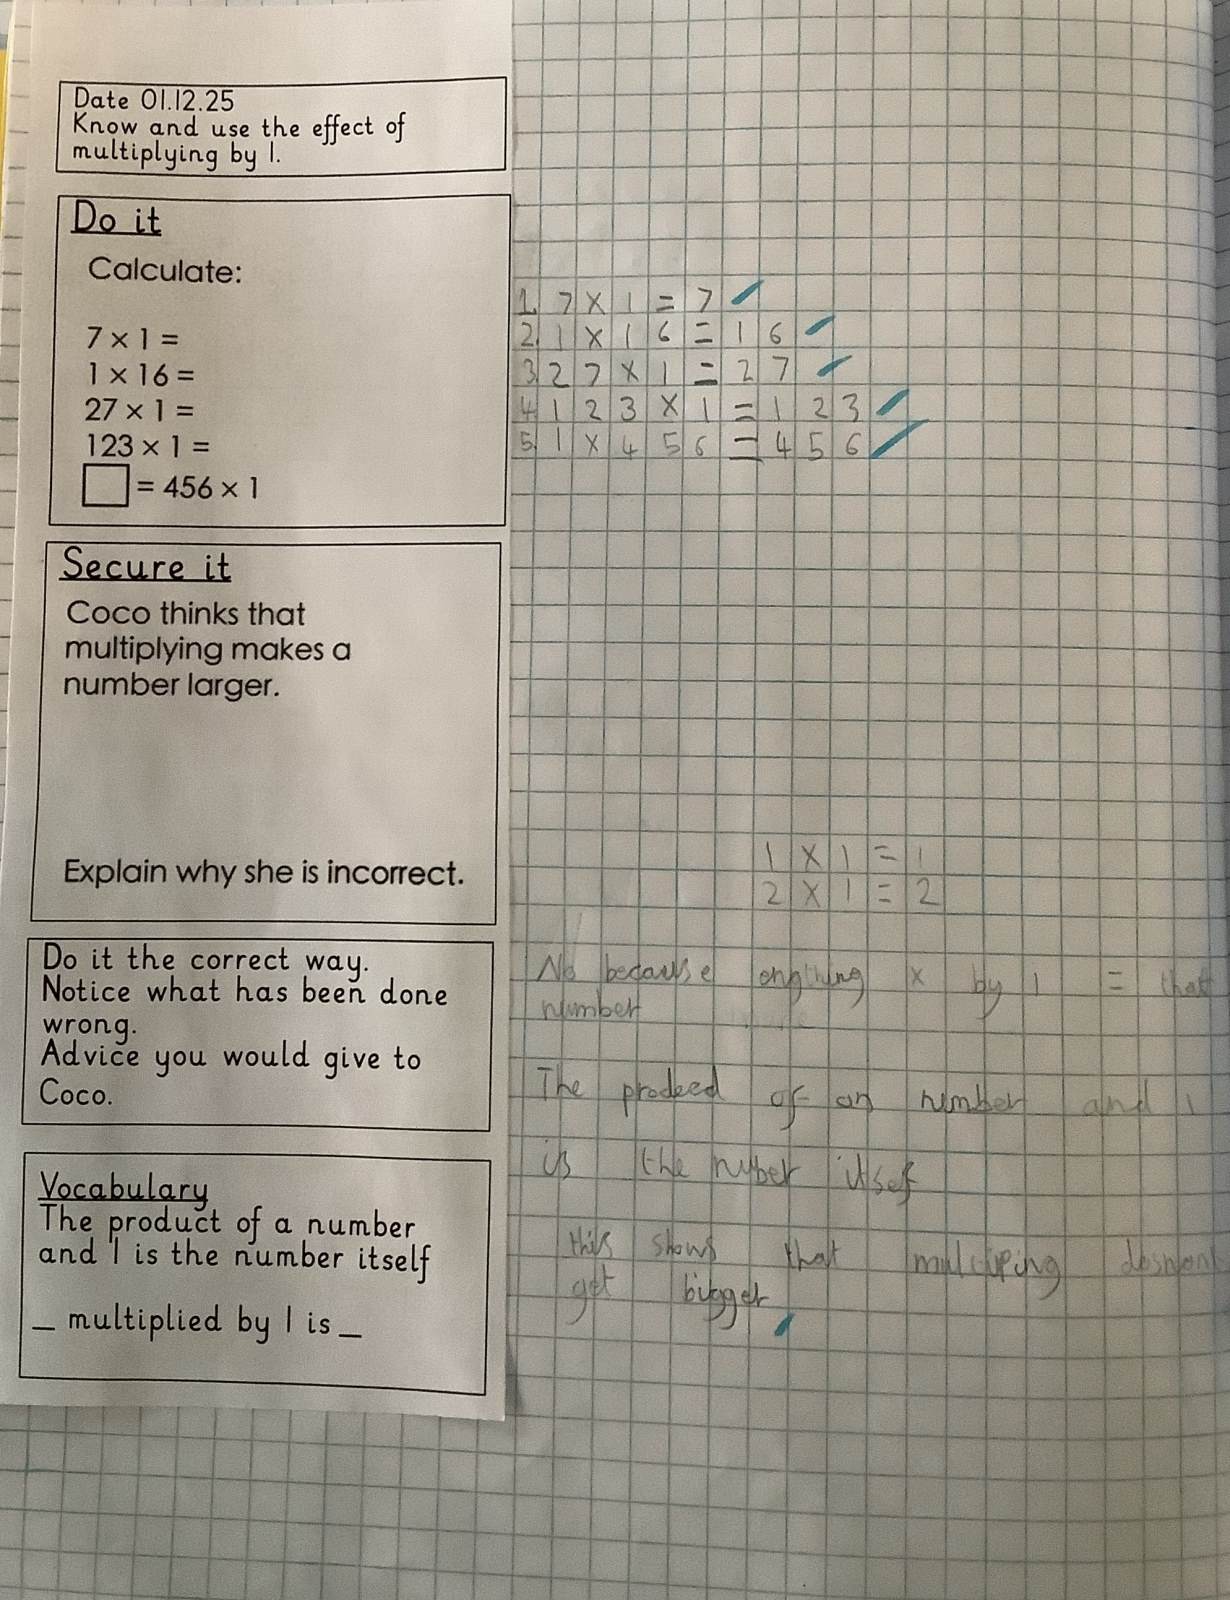 Date 01.12.25
Know and use the effect of
multiplying by 1.
Do it
Calculate:
7 × 1 =
1 × 16 =
27 × 1 =
123 × 1 =
= 456 × 1
1. 7 × 1 = 7
2. 1 × 16 = 16
3. 27 × 1 = 27
4. 123 × 1 = 123
5. 1 × 456 = 456
Secure it
Coco thinks that
multiplying makes a
number larger.
Explain why she is incorrect.
1 × 1 = 1
2 × 1 = 2
Do it the correct way.
Notice what has been done
wrong.
Advice you would give to
Coco.
No because engthing × by 1 = that
number
The prodeed of an number and 1
is the nuber itself
this shows that multiping
get bigger
Vocabulary
The product of a number
and 1 is the number itself
_ multiplied by 1 is _